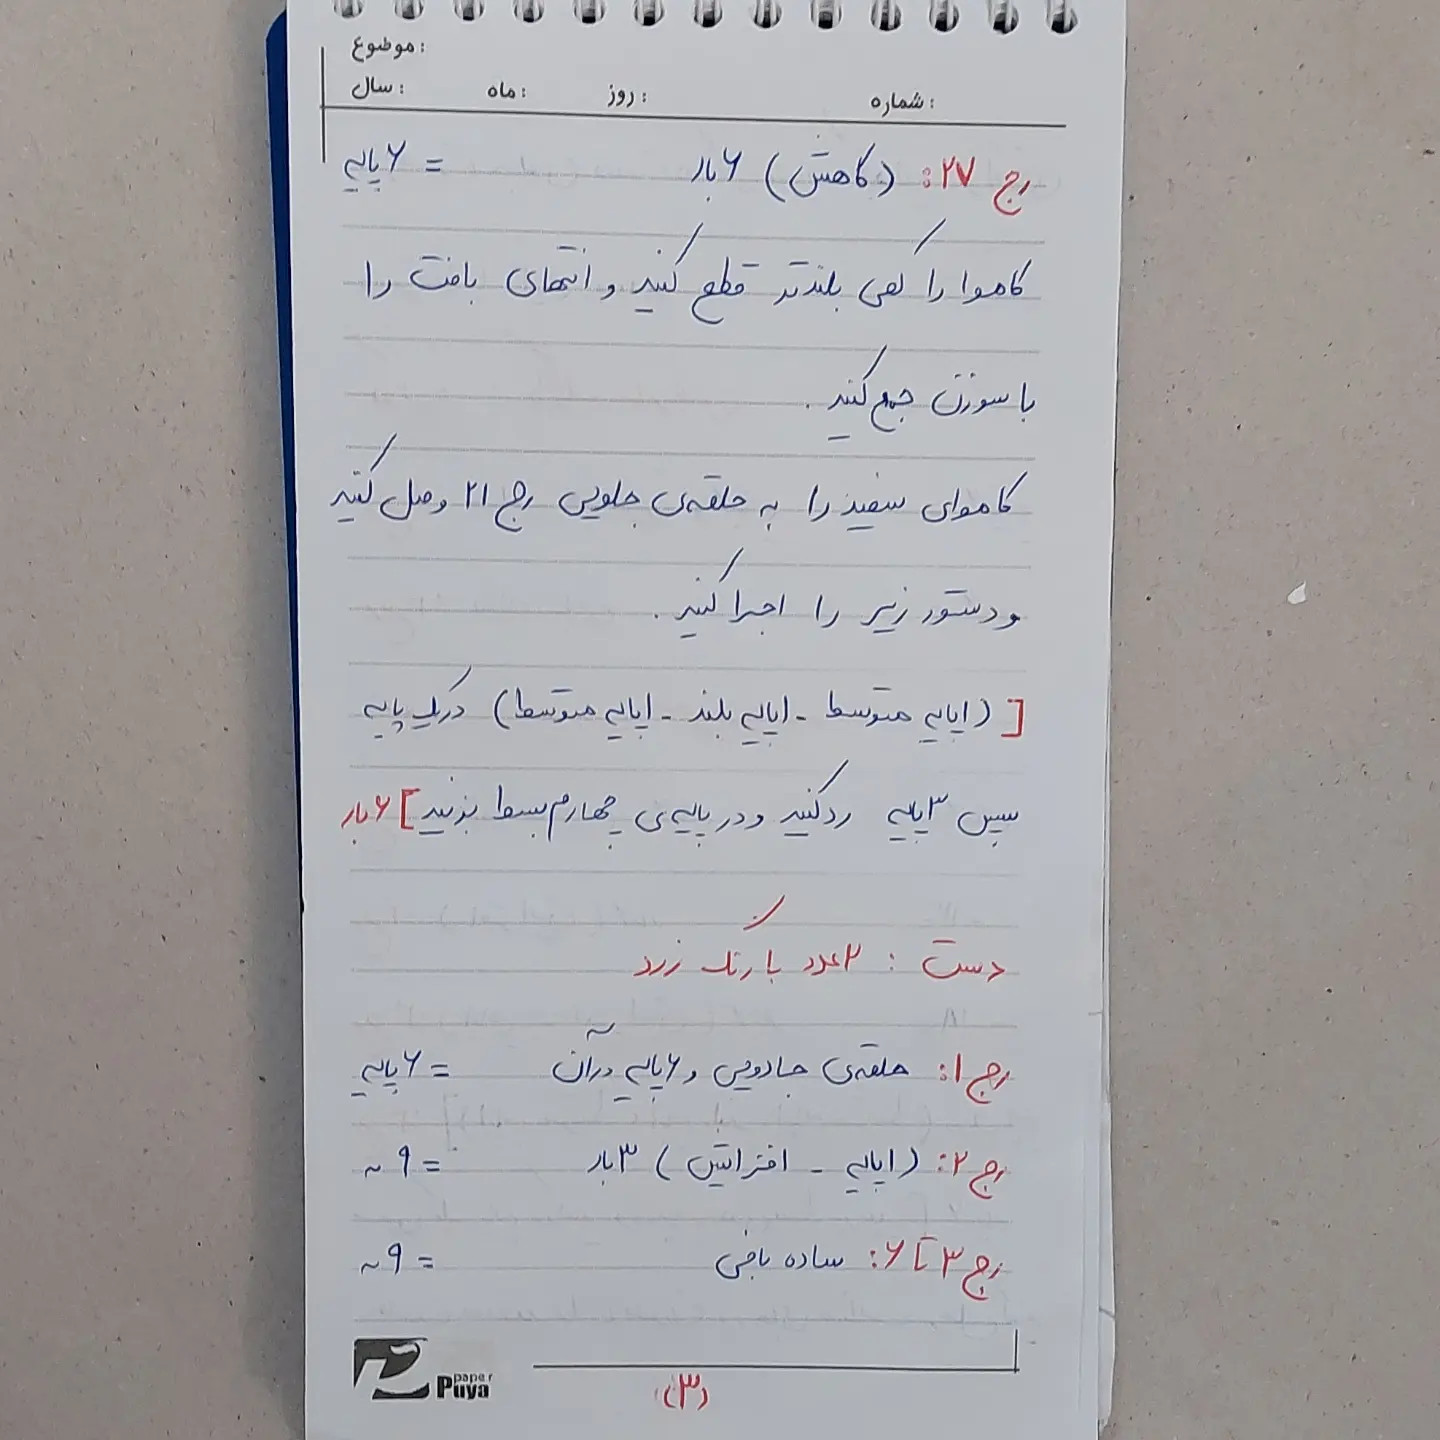 موضوع :
سال : ماه : روز : شماره :
رج ۲۷: (کاهش) ۶ بار = ۶ پایه
کاموا را کمی بلندتر قطع کنید و انتهای بافت را
با سوزن جمع کنید .
کاموای سفید را به حلقه‌ی جلویی رج ۲۱ وصل کنید
و دستور زیر را اجرا کنید .
[ (۱پایه متوسط - ۱پایه بلند - ۱پایه متوسط) در یک پایه
سپس ۳پایه رد کنید و در پایه‌ی چهارم بسط بزنید ] ۶ بار
دست : ۲عدد با رنگ زرد
رج ۱: حلقه‌ی جادویی و ۶پایه در آن = ۶ پایه
رج ۲: (۱پایه - افزایش) ۳ بار = ۹ ~
رج ۳ تا ۶: ساده بافی = ۹ ~
paper
Puya
(۳)